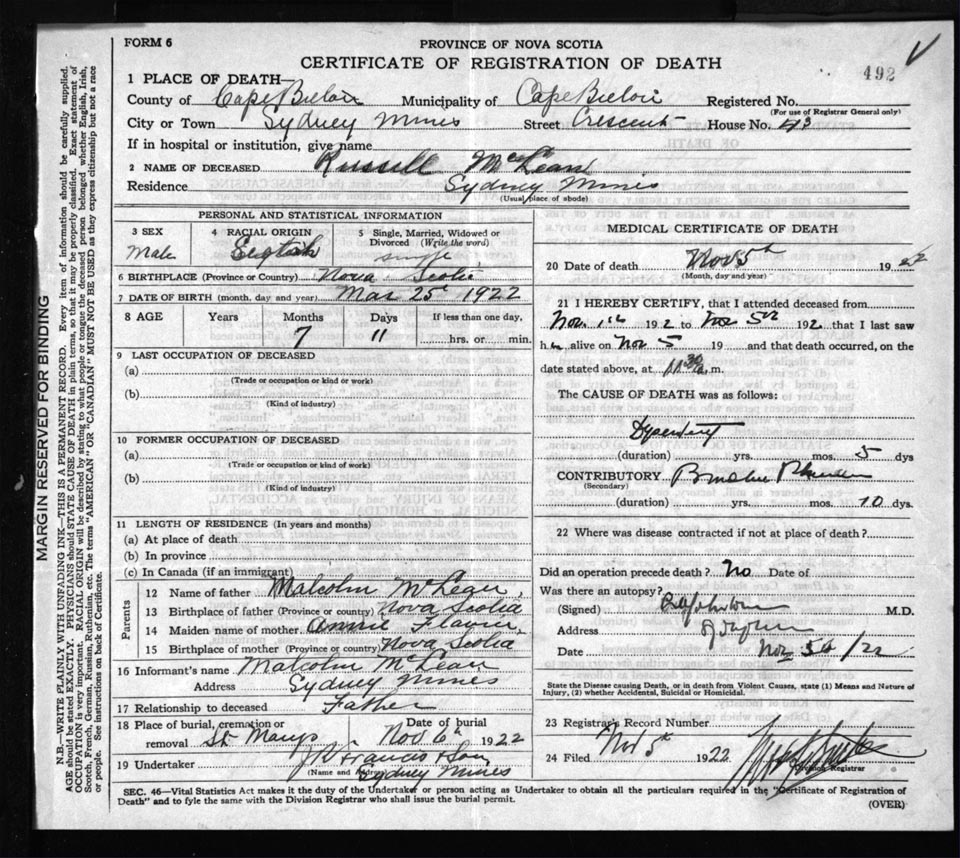 FORM 6
PROVINCE OF NOVA SCOTIA
CERTIFICATE OF REGISTRATION OF DEATH
492
1 PLACE OF DEATH—
County of Cape Breton Municipality of Cape Breton Registered No.
(For use of Registrar General only)
City or Town Sydney Mines Street Crescent House No. 43
If in hospital or institution, give name
2 NAME OF DECEASED Russell McLean
Residence Sydney Mines
(Usual place of abode)
PERSONAL AND STATISTICAL INFORMATION
3 SEX 4 RACIAL ORIGIN 5 Single, Married, Widowed or Divorced (Write the word)
Male Scotch single
6 BIRTHPLACE (Province or Country) Nova Scotia
7 DATE OF BIRTH (month, day and year) Mar 25th 1922
8 AGE Years Months Days If less than one day,
7 11 hrs. or min.
9 LAST OCCUPATION OF DECEASED
(a)
(Trade or occupation or kind or work)
(b)
(Kind of industry)
10 FORMER OCCUPATION OF DECEASED
(a)
(Trade or occupation or kind or work)
(b)
(Kind of industry)
11 LENGTH OF RESIDENCE (In years and months)
(a) At place of death
(b) In province
(c) In Canada (if an immigrant)
Parents
12 Name of father Malcolm McLean
13 Birthplace of father (Province or country) Nova Scotia
14 Maiden name of mother Annie
15 Birthplace of mother (Province or country) Nova Scotia
16 Informant's name Malcolm McLean
Address Sydney Mines
17 Relationship to deceased Father
18 Place of burial, cremation or removal St Marys Date of burial Nov 6th 1922
19 Undertaker Francis & Son
(Name and Address) Sydney Mines
MEDICAL CERTIFICATE OF DEATH
20 Date of death Nov 5th 1922
(Month, day and year)
21 I HEREBY CERTIFY, that I attended deceased from
Nov 1st 192 to Nov 5th 192 that I last saw
h alive on Nov 5 19 and that death occurred, on the
date stated above, at 11.30 a.m.
The CAUSE OF DEATH was as follows:
Dysentery
(duration) yrs. mos. 5 dys
CONTRIBUTORY
(Secondary)
(duration) yrs. mos. 10 dys.
22 Where was disease contracted if not at place of death?
Did an operation precede death? No Date of
Was there an autopsy?
(Signed) M.D.
Address
Date Nov 5th /22
State the Disease causing Death, or in death from Violent Causes, state (1) Means and Nature of
Injury, (2) whether Accidental, Suicidal or Homicidal.
23 Registrar's Record Number
24 Filed Nov 5th 1922
Division Registrar
SEC. 46—Vital Statistics Act makes it the duty of the Undertaker or person acting as Undertaker to obtain all the particulars required in the "Certificate of Registration of
Death" and to fyle the same with the Division Registrar who shall issue the burial permit.
(OVER)
MARGIN RESERVED FOR BINDING
N.B.—WRITE PLAINLY, WITH UNFADING INK—THIS IS A PERMANENT RECORD. Every item of information should be carefully supplied.
AGE should be stated EXACTLY. PHYSICIANS should STATE CAUSE OF DEATH in plain terms, so that it may be properly classified. Exact statement of
OCCUPATION is very important. RACIAL ORIGIN will be described by stating to what people or tongue the deceased person belonged whether English, Irish,
Scotch, French, German, Russian, Ruthenian, etc. The terms "AMERICAN" OR "CANADIAN" MUST NOT BE USED as they express citizenship but not a race
or people. See instructions on back of Certificate.